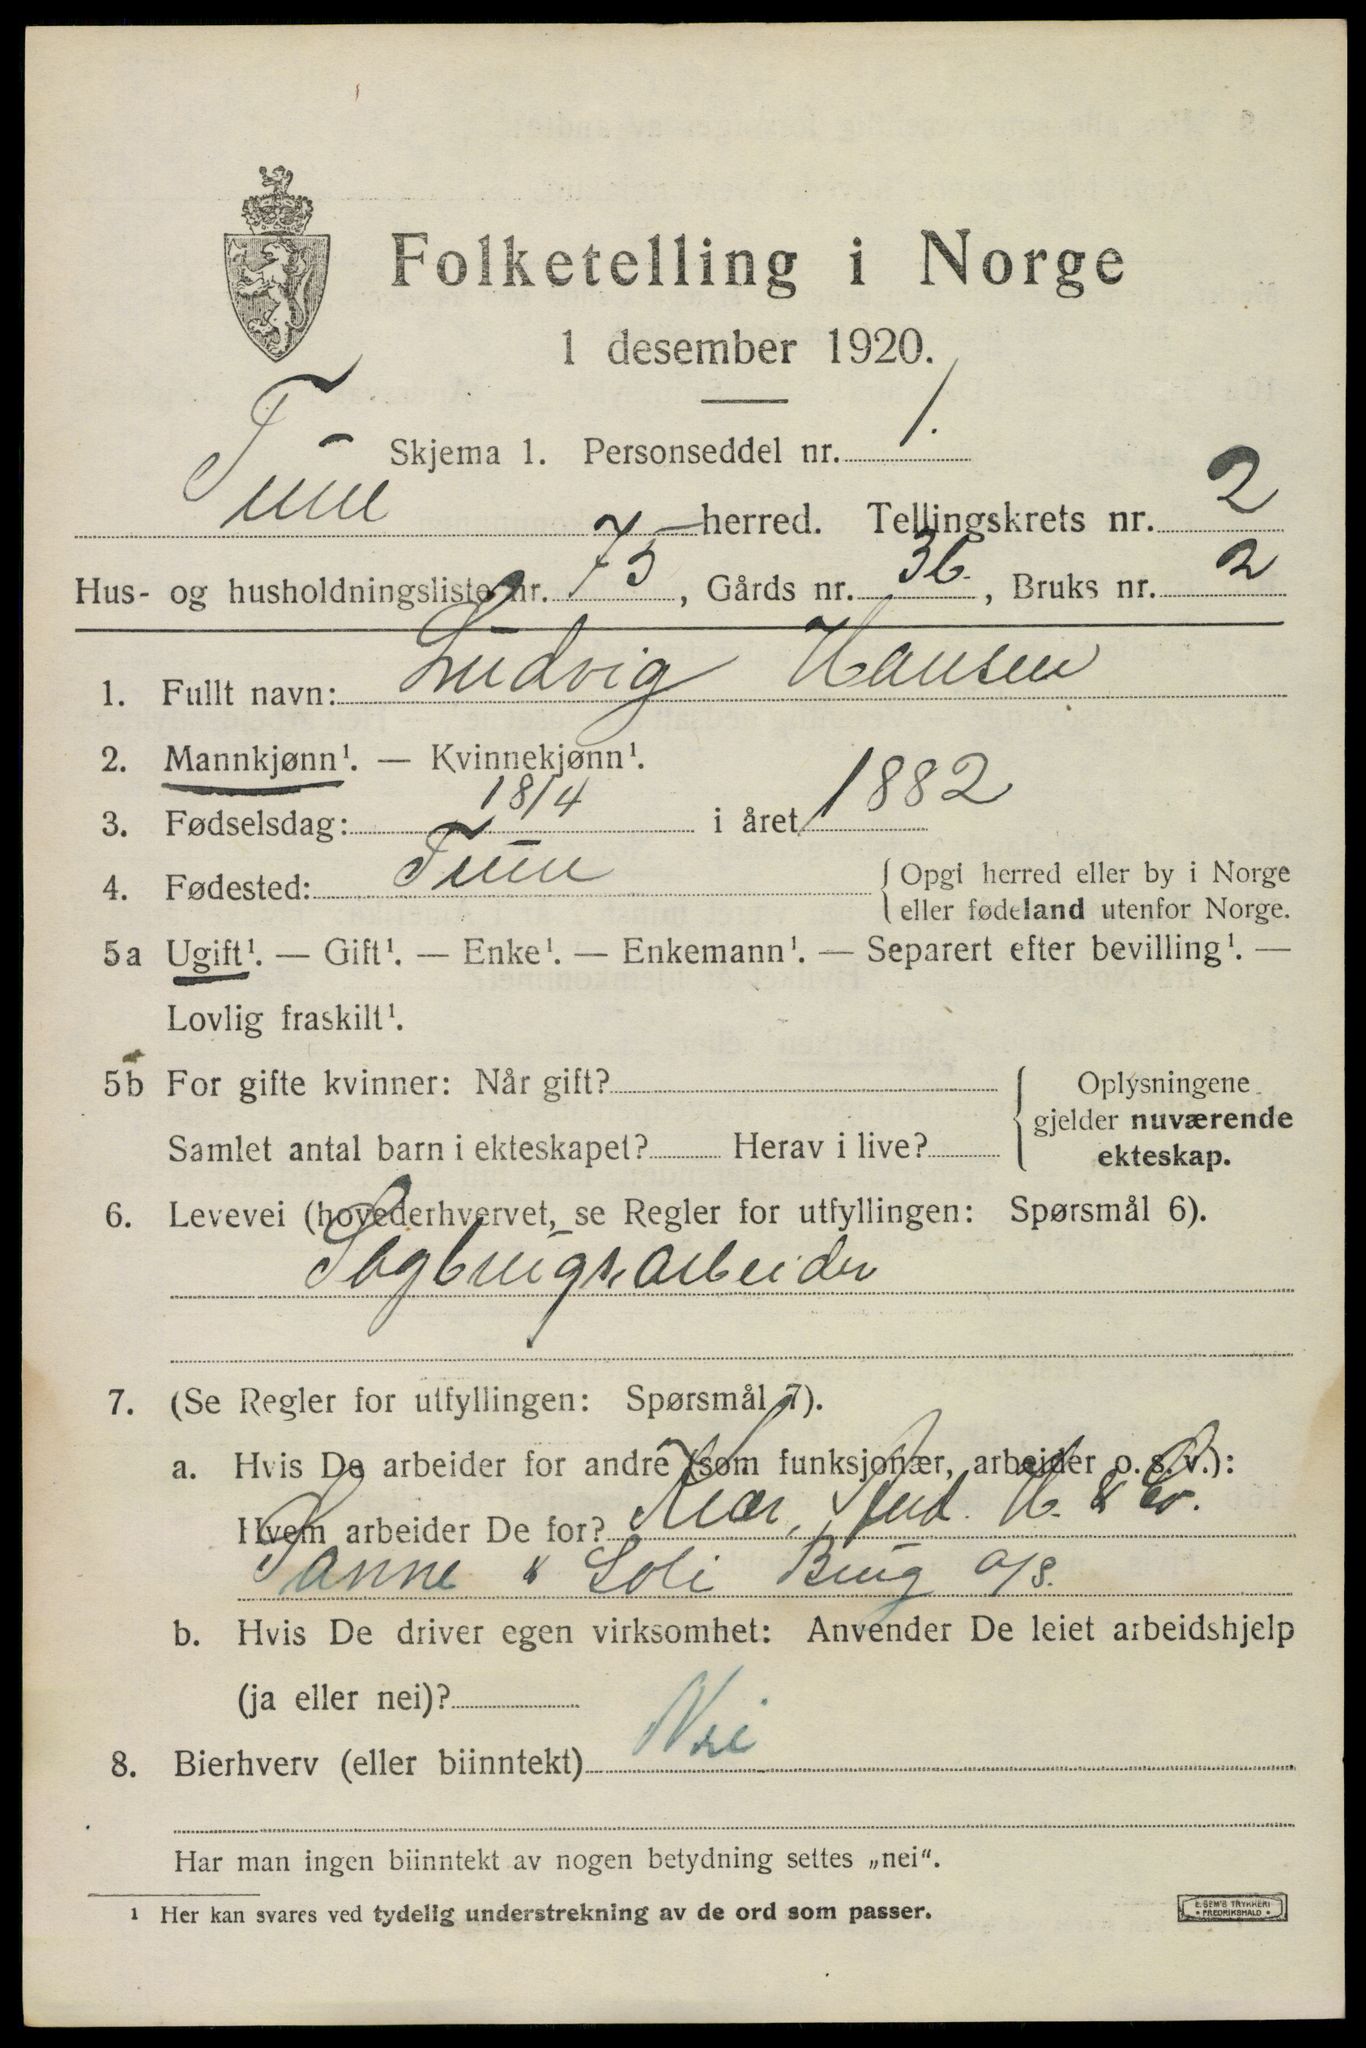 Folketelling i Norge
1 desember 1920.
Skjema 1. Personseddel nr. 1.
Tune herred. Tellingskrets nr. 2
Hus- og husholdningsliste nr. 75, Gårds nr. 36, Bruks nr. 2
1. Fullt navn: Ludvig Hansen
2. Mannkjønn¹. — Kvinnekjønn¹.
3. Fødselsdag: 18/4 i året 1882
4. Fødested: Tune { Opgi herred eller by i Norge
eller fødeland utenfor Norge.
5a Ugift¹. — Gift¹. — Enke¹. — Enkemann¹. — Separert efter bevilling¹. —
Lovlig fraskilt¹.
5b For gifte kvinner: Når gift? { Oplysningene
gjelder nuværende
Samlet antal barn i ekteskapet? Herav i live? ekteskap.
6. Levevei (hovederhvervet, se Regler for utfyllingen: Spørsmål 6).
Sagbrugsarbeider
7. (Se Regler for utfyllingen: Spørsmål 7).
a. Hvis De arbeider for andre (som funksjonær, arbeider o. s. v.):
Hvem arbeider De for? Kiær, And. H. & Co.
Sanne & Soli Brug A/S.
b. Hvis De driver egen virksomhet: Anvender De leiet arbeidshjelp
(ja eller nei)?
8. Bierhverv (eller biinntekt) Nei
Har man ingen biinntekt av nogen betydning settes „nei“.
¹ Her kan svares ved tydelig understrekning av de ord som passer.
E. SEM'S TRYKKERI
• FREDRIKSHALD •